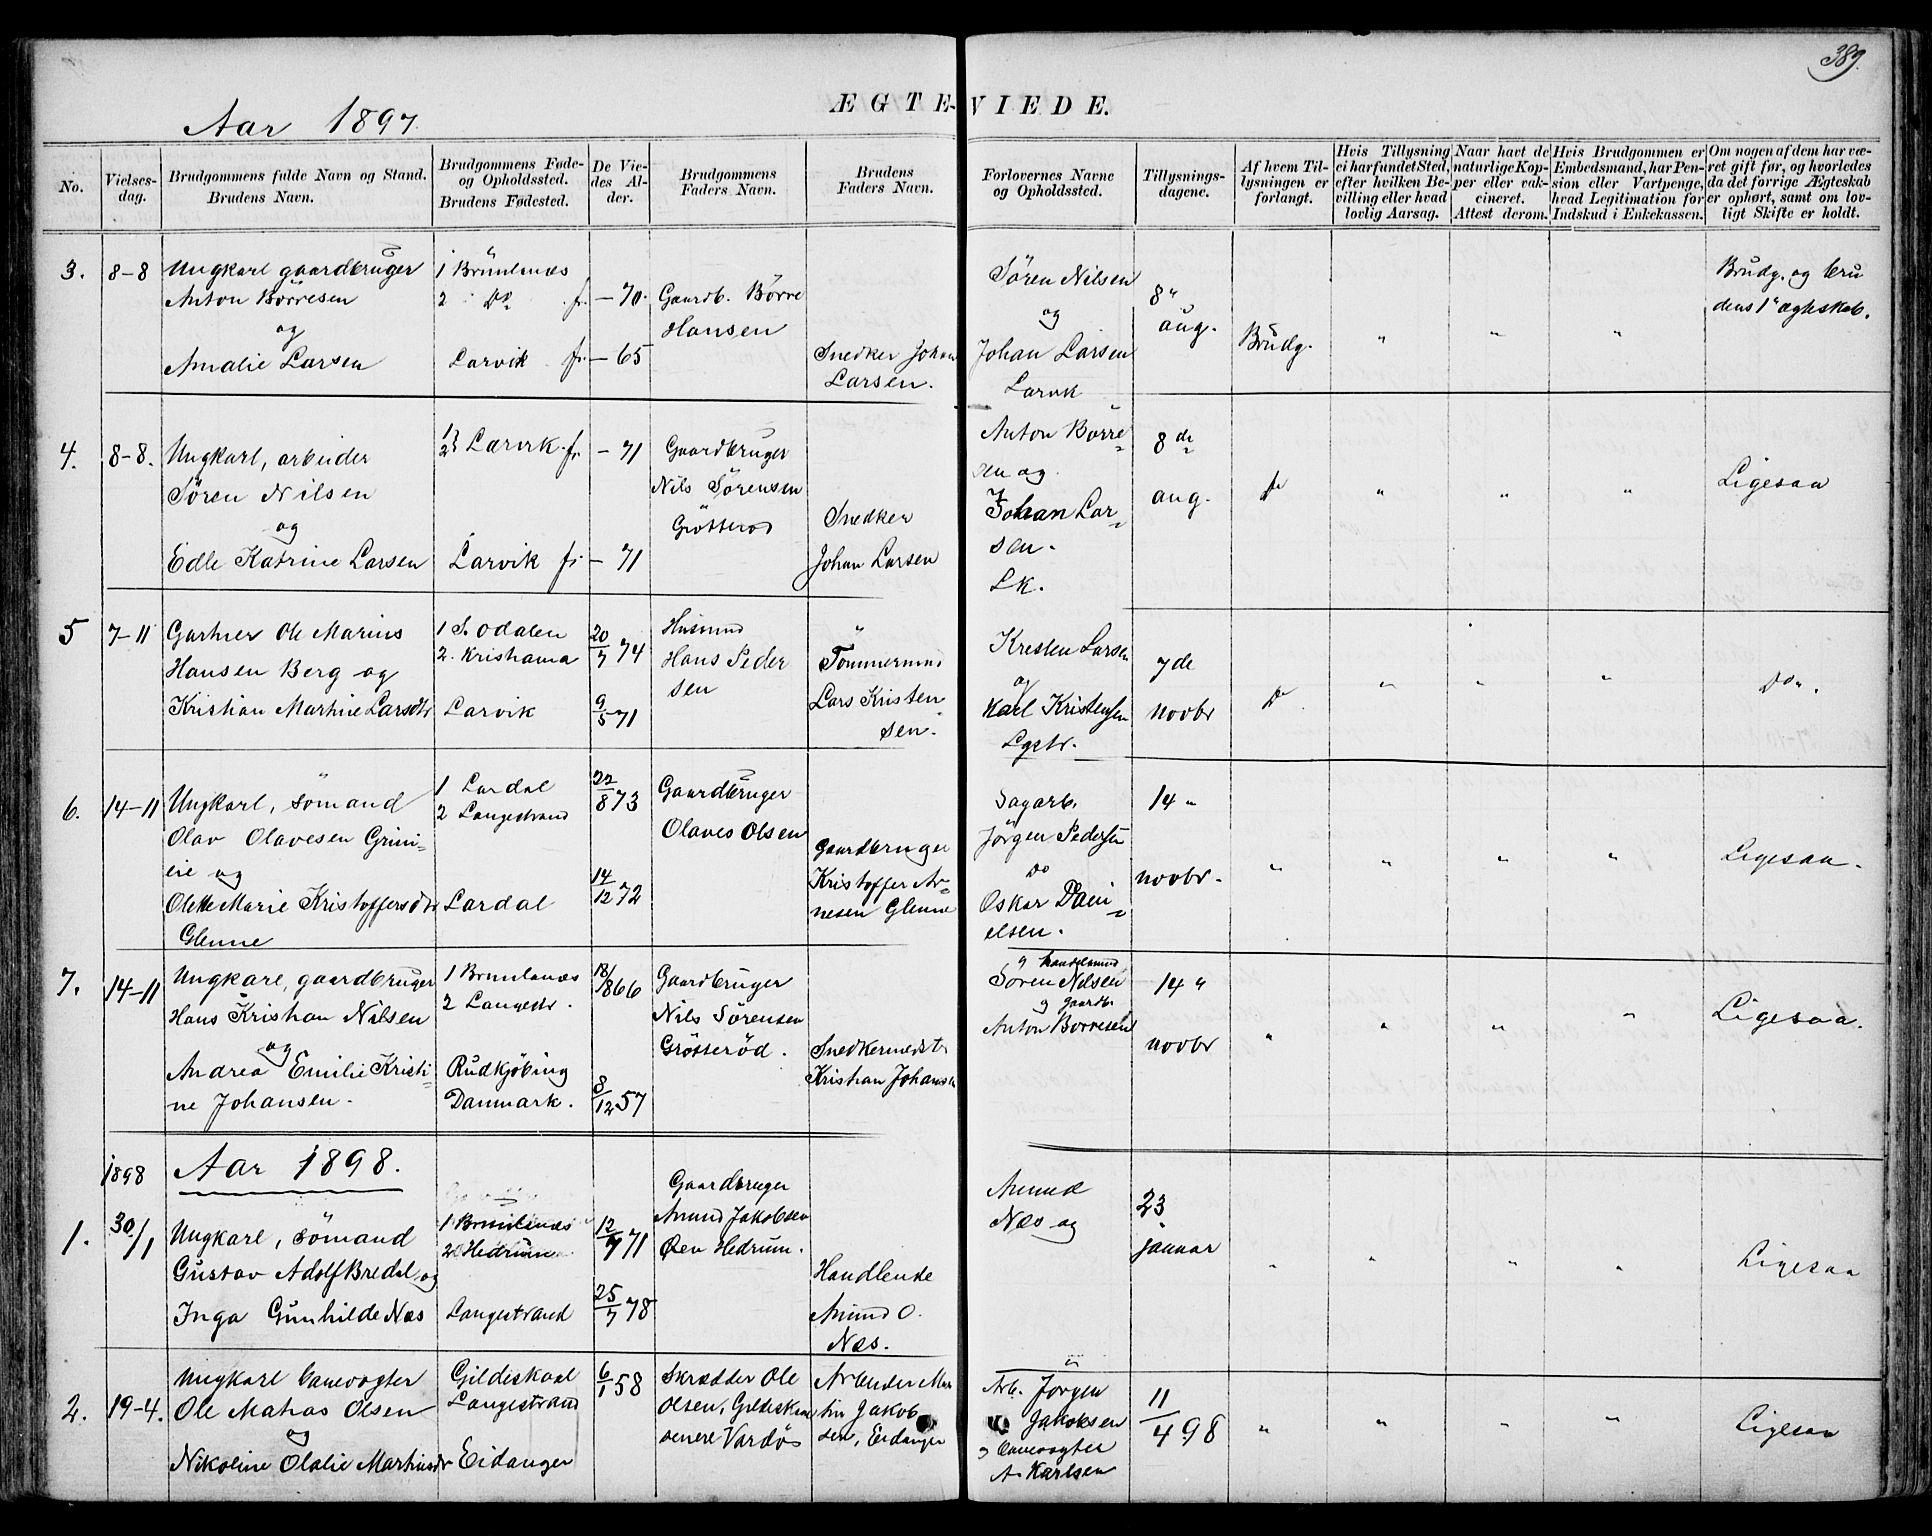 389.
ÆGTE-VIEDE.
Aar 1897.
No.
Vielses-
dag.
Brudgommens fulde Navn og Stand.
Brudens Navn.
Brudgommens Føde-
og Opholdssted.
Brudens Fødested.
De Vie-
des Al-
der.
Brudgommens
Faders Navn.
Brudens
Faders Navn.
Forlovernes Navne
og Opholdssted.
Tillysnings-
dagene.
Af hvem Til-
lysningen er
forlangt.
Hvis Tillysning
ei har fundet Sted,
efter hvilken Be-
villing eller hvad
lovlig Aarsag.
Naar havt de
naturlige Kop-
per eller vak-
cineret.
Attest derom.
Hvis Brudgommen er
Embedsmand, har Pen-
sion eller Vartpenge,
hvad Legitimation for
Indskud i Enkekassen.
Om nogen af dem har væ-
ret gift før, og hvorledes
da det forrige Ægteskab
er ophørt, samt om lov-
ligt Skifte er holdt.
3.
8-8
Ungkarl gaardbruger
Anton Börresen
og
Amalie Larsen
1 Brunlanæs
2 Do f.
Larvik f.
- 70.
- 65
Gaardb. Börre
Hansen
Snedker Johan
Larsen.
Sören Nilsen
og
Johan Larsen
Larvk
8"
aug.
Brudg.
" " "
Brudg. og bru
dens 1" ægteskab.
4.
8-8.
Ungkarl, arbeider
Sören Nilsen
og
Edle Katrine Larsen
1} Larvik f.
2}
Larvik f.
- 71
- 71
Gaardbruger
Nils Sörensen
Grötterod
Snedker
Johan Larsen
Anton Börre=
sen og
Johan Lar=
sen.
Lk.
8 de
aug.
do
" " "
Ligesaa
5
7-11
Gartner Ole Marius
Hansen Berg og
Kristian Martine Larsdtr
1 S. Odalen
2. Kristiania
Larvik
20/7 74
9/5 71
Husmnd
Hans Peder
sen
Tömmermnd
Lars Kristen
sen.
Kresten Larsen
og
Karl Kristensen
Lgstr.
7 de
novbr
Do
" " "
Do".
6.
14-11
Ungkarl, sömand
Olav Olavesen Grim-
eie og
Olette Marie Kristoffersdtr
Glenne
1 Lardal
2 Langestrand
Lardal
22/8 73
14/12 72
Gaardbruger
Olaves Olsen
Gaardbruger
Kristoffer Ar=
nesen Glenne
Sagarb.
Jörgen Pedersen
Do
Oskar Dani=
elsen.
14 "
novbr.
" " " "
Ligesaa.
7.
14-11
Ungkarl, gaardbruger
Hans Kristian Nilsen
og
Andrea Emilie Kristi-
ne Johansen.
1 Brunlanæs
2 Langestr.
Rudkjöbing
Danmark.
18/8 66
8/12 57
Gaardbruger
Nils Sörensen
Grötteröd.
Snedkermestr
Kristian Johansen
handelsmnd
Sören Nilsen
og gaardb.
Anton Börresen
14 "
novbr
" " " "
Ligesaa.
1898
Aar 1898.
1.
30/1
Ungkarl, sömand
Gustav Adolf Bredal og
Inga Gunhilde Næs
1 Brunlanæs
2 Hedrum
Langestrand
12/7 71
25/7 78
Gaardbruger
Amund Jakobsen
Øen Hedrum.
Handlende
Amund O.
Næs.
Amund
Næs og
23
januar
" " " "
Ligesaa
2.
19-4.
Ungkarl banevogter
Ole Matias Olsen
og
Nikoline Olalie Martinsdtr
Gildeskaal
Langestrand
Eidanger
6/1 58
Skrædder Ole
Olsen, Gildeskaal
senere Vardös
Arbeider Mar
tin Jakob
sen, Eidanger
Arb. Jörgen
Jakobsen
og banevogter
A. Karlsen
11/4 98
" " " "
Ligesaa